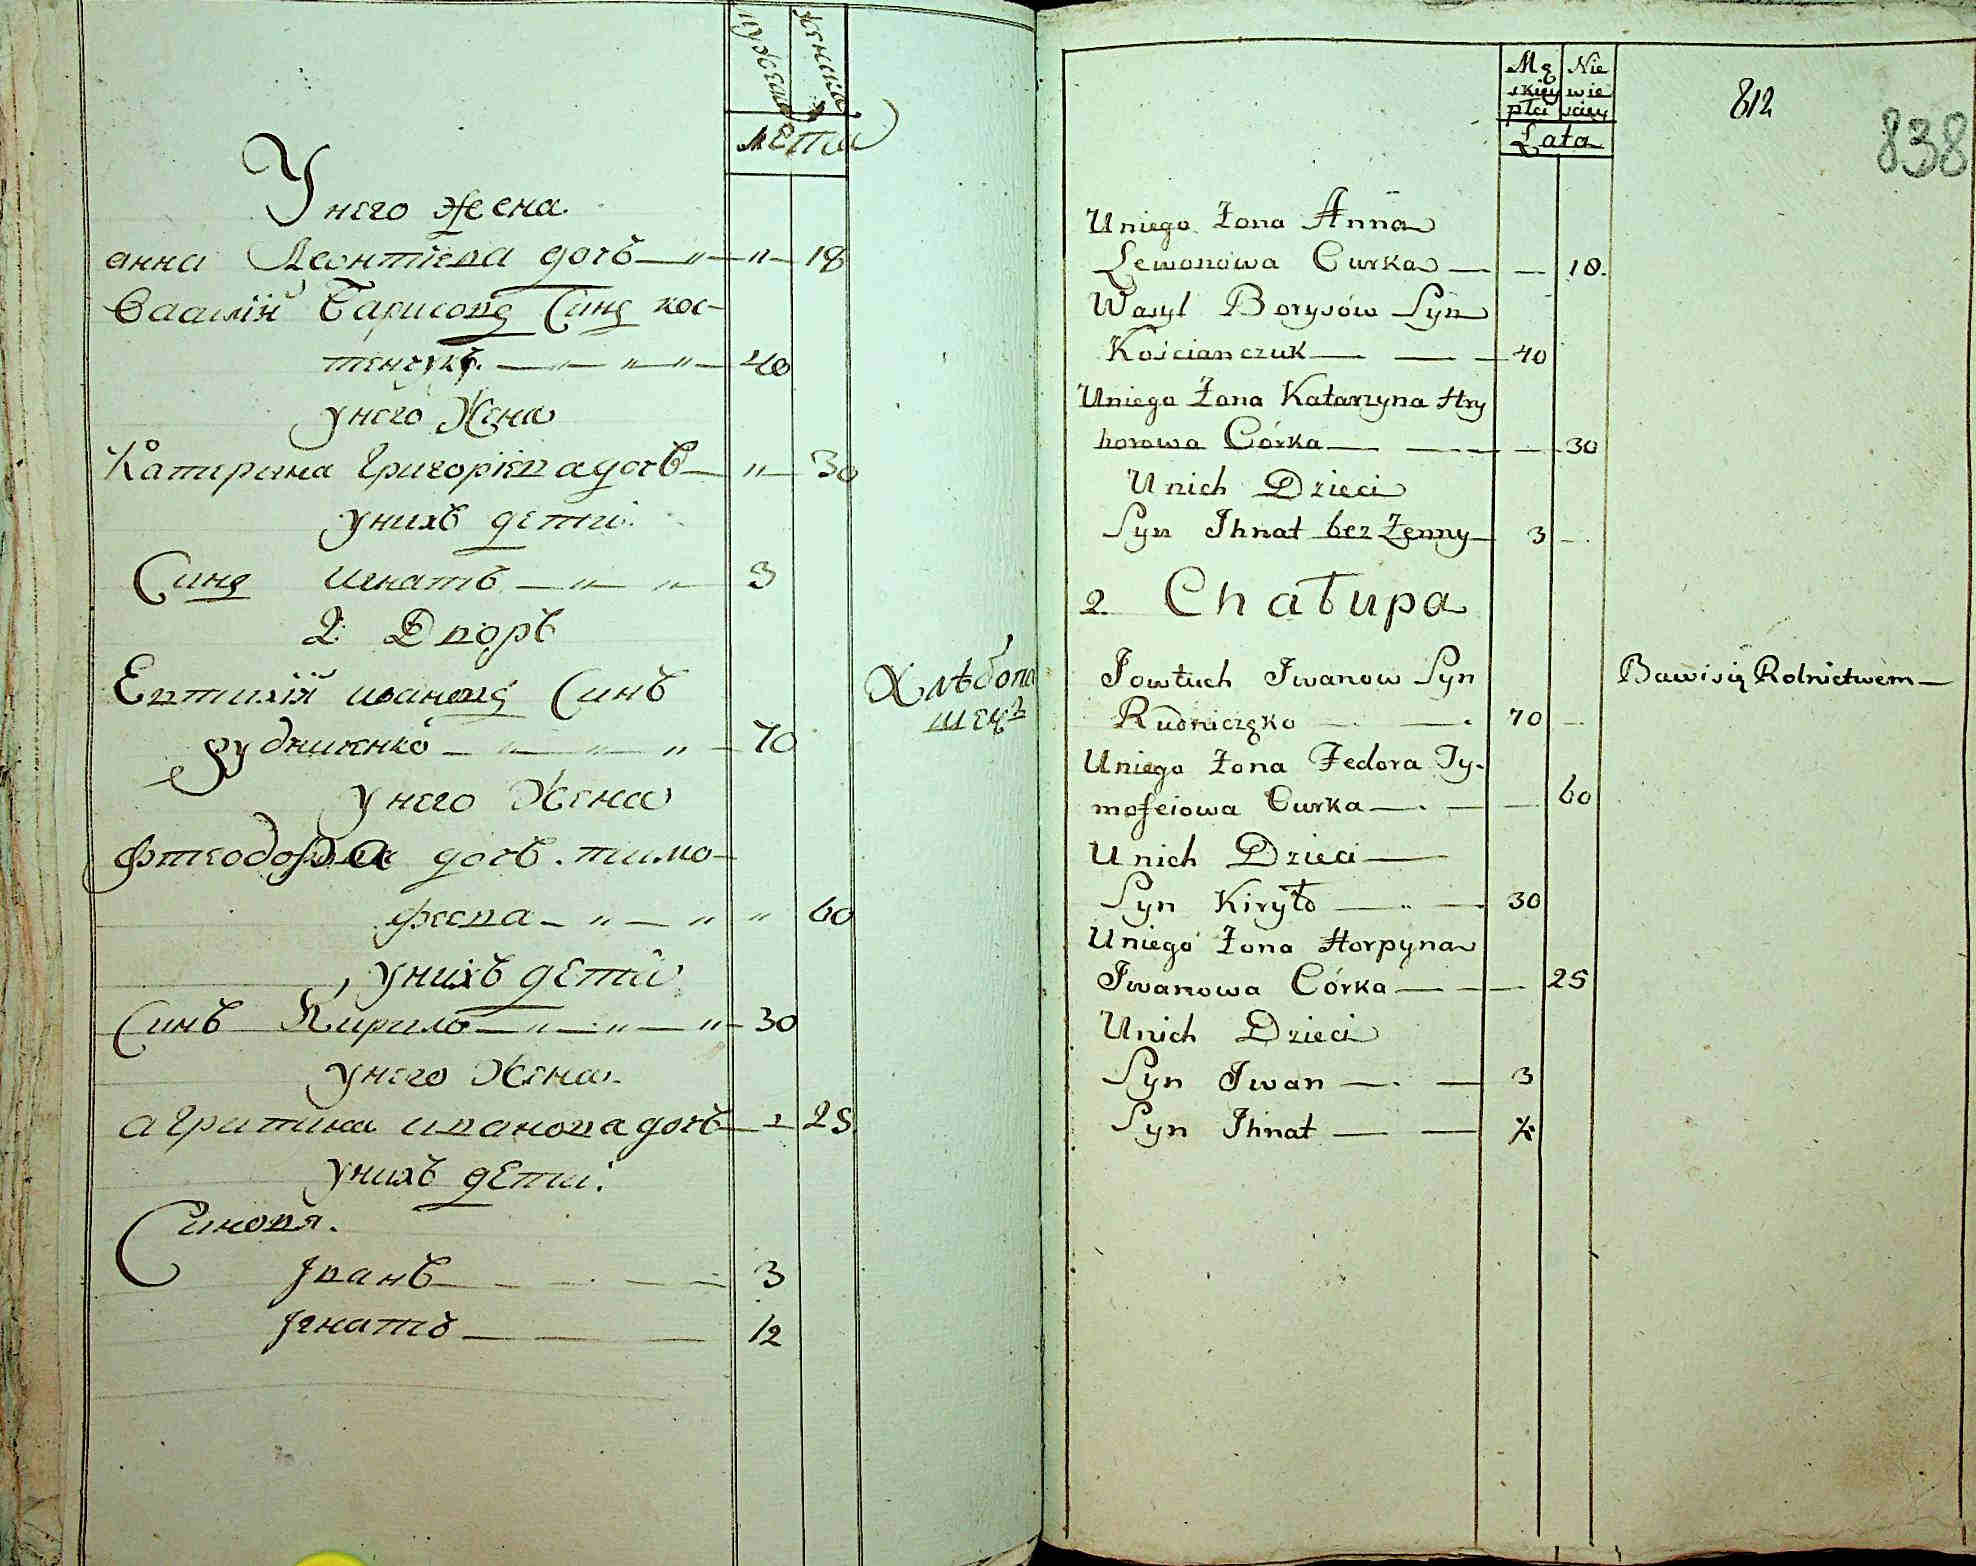 мужеска женска
лета
У него жена
анна Леонтиева дочъ — „ — „ — 18
Василїй Барисовъ Синъ кос-
тенчукъ. — „ — „ — „ — 40
у него Жена
Катирина Григорїева дочъ — „ — 30
у нихъ дети.
Синъ игнатъ — „ — „ 3
2 Дворъ
Евтихїй ивановъ Синъ
рудниченко — „ — „ — „ — 70
Хлѣбопа
шецъ
у него Жена
Фтеодора дочъ. тимо-
феева — „ — „ „ 60
у нихъ дети
Синъ Кирило — „ — „ — „ — 30
у него Жена.
агрипина иванова дочъ — „ — 25
у нихъ дети.
Синовя.
Іванъ — 3
Ігнатъ — 12
Mę skiey płci Nie wie sciey
Lata
812
838
Uniego Żona Anna
Lewonowa Curka — — 18.
Wasyl Borysów Syn
Kościanczuk — — 40
Uniego Żona Katarzyna Hry
horowa Córka — — — 30
Unich Dzieci
Syn Ihnat bez Żenny — 3 —
2 Chałupa
Jowtuch Iwanow Syn
Bawi się Rolnictwem —
Rudniczęko — — 70 —
Uniego Żona Fedora Ty-
mofeiowa Curka — — — 60
Unich Dzieci —
Syn Kiryło — — 30
Uniego Żona Horpyna
Iwanowa Córka — — — 25
Unich Dzieci
Syn Iwan — — 3
Syn Ihnat — — ½